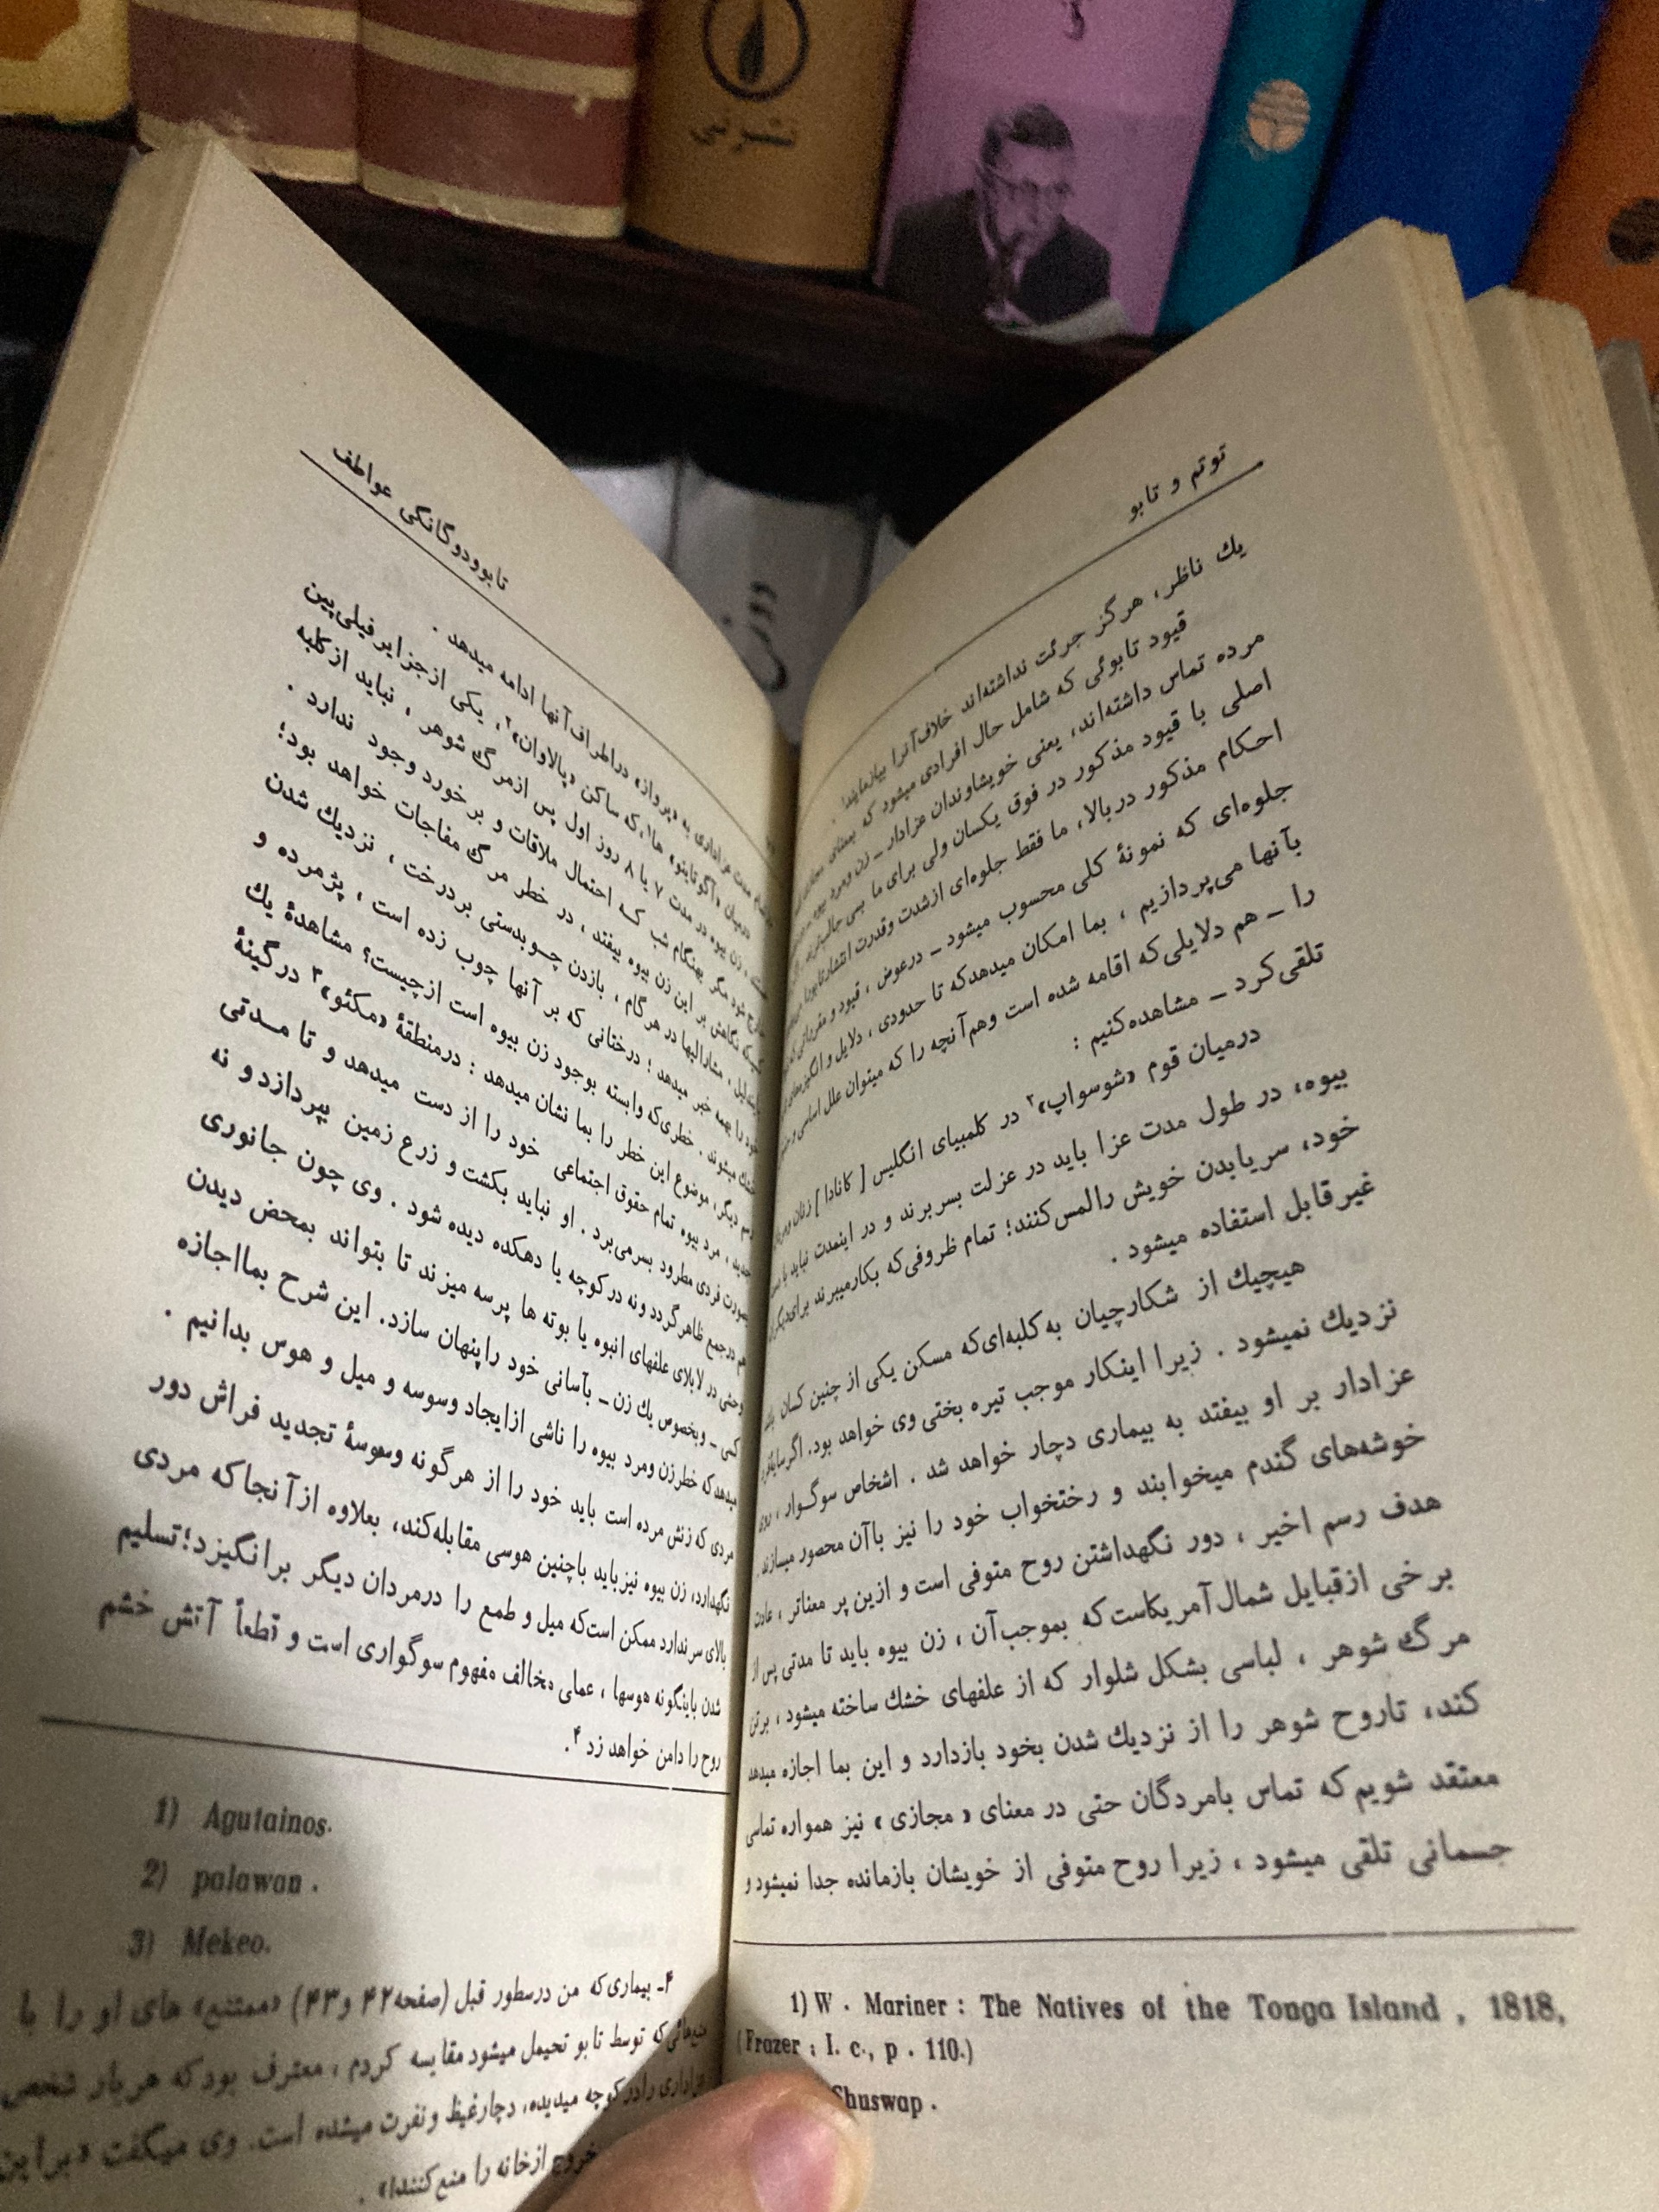 نشر نی
توتم و تابو
یك ناظر، هرگز جرئت نداشته‌اند خلاف آنرا بیازمایند۱.
قیود تابوئی که شامل حال افرادی میشود که بمعنای
مرده تماس داشته‌اند، یعنی خویشاوندان عزادار ـ زن ومرد بیوه
اصلی با قیود مذکور در فوق یکسان ولی برای ما بسی
احکام مذکور دربالا، ما فقط جلوه‌ای ازشدت وقدرت انتشار تابو را
جلوه‌ای که نمونهٔ کلی محسوب میشود ـ درعوض ، قیود و
بآنها می‌پردازیم ، بما امکان میدهدکه تا حدودی ، دلایل و انگیزه‌های
را ـ هم دلایلی‌که اقامه شده است وهم‌آنچه را که میتوان علل اساسی و
تلقی‌کرد ـ مشاهده‌کنیم :
درمیان قوم «شوسواپ»۲ در کلمبیای انگلیس [ کانادا ] زنان و
بیوه، در طول مدت عزا باید در عزلت بسربرند و در اینمدت نباید با
خود، سریابدن خویش رالمس‌کنند؛ تمام ظروفی‌که بکارمیبرند برای
غیرقابل استفاده میشود .
هیچیك از شکارچیان به‌کلبه‌ای‌که مسکن یکی از چنین کسان
نزدیك نمیشود . زیرا اینکار موجب تیره بختی وی خواهد بود. اگر
عزادار بر او بیفتد به بیماری دچار خواهد شد . اشخاص سوگوار ، روی
خوشه‌های گندم میخوابند و رختخواب خود را نیز باآن محصور میسازند.
هدف رسم اخیر ، دور نگهداشتن روح متوفی است و ازین پر معناتر ، عادت
برخی ازقبایل شمال‌آمریکاست‌که بموجب‌آن ، زن بیوه باید تا مدتی پس از
مرگ شوهر ، لباسی بشکل شلوار که از علفهای خشك ساخته میشود ، برتن
کند، تاروح شوهر را از نزدیك شدن بخود بازدارد و این بما اجازه میدهد
معتقد شویم‌که تماس بامردگان حتی در معنای « مجازی » نیز همواره تماسی
جسمانی تلقی میشود ، زیرا روح متوفی از خویشان بازمانده جدا نمیشود و
1) W . Mariner : The Natives of the Tonga Island , 1818,
(Frazer : I. c., p . 110.)
Shuswap .
تابوودوگانگی عواطف
مدت عزاداری به «پرواز» دراطراف‌آنها ادامه میدهد .
درمیان «آگوتاینو» ها۱،که ساکن «پالاوان»۲، یکی ازجزایرفیلی‌پین
زن بیوه در مدت ۷ یا ۸ روز اول پس ازمرگ شوهر ، نباید ازکلبه
شود مگر بهنگام شب که احتمال ملاقات و برخورد وجود ندارد .
نگاهش بر این زن بیوه بیفتد ، در خطر مرگ مفاجات خواهد بود؛
مشارالیها در هرگام ، بازدن چوبدستی بردرخت ، نزدیك شدن
خود را بهمه خبر میدهد ؛ درختانی که بر آنها چوب زده است ، پژمرده و
خشك میشوند . خطری‌که وابسته بوجود زن بیوه است ازچیست؟ مشاهدهٔ یك
رسم دیگر، موضوع این خطر را بما نشان میدهد : درمنطقهٔ «مکئو»۳ درگینهٔ
جدید ، مرد بیوه تمام حقوق اجتماعی خود را از دست میدهد و تا مدتی
بصورت فردی مطرود بسرمی‌برد . او نباید بکشت و زرع زمین بپردازد و نه
هم درجمع ظاهرگردد ونه درکوچه یا دهکده دیده شود . وی چون جانوری
وحشی در لابلای علفهای انبوه یا بوته ها پرسه میزند تا بتواند بمحض دیدن
کسی ـ وبخصوص یك زن ـ بآسانی خود راپنهان سازد. این شرح بمااجازه
میدهدکه خطرزن ومرد بیوه را ناشی ازایجاد وسوسه و میل و هوس بدانیم .
مردی که زنش مرده است باید خود را از هرگونه وسوسهٔ تجدید فراش دور
نگهدارد، زن بیوه نیزباید باچنین هوسی مقابله‌کند، بعلاوه ازآنجاکه مردی
بالای سرندارد ممکن است‌که میل و طمع را درمردان دیگر برانگیزد؛تسلیم
شدن باینگونه هوسها ، عملی مخالف مفهوم سوگواری است و قطعاً آتش خشم
روح را دامن خواهد زد ۴.
1) Agutainos.
2) palawan .
3) Mekeo.
۴ـ بیماری‌که من درسطور قبل (صفحه۴۲ و۴۳) «ممتنع» های او را با
که توسط تابو تحیمل میشود مقایسه کردم ، معترف بودکه هربار شخص
عزاداری رادرکوچه میدیده، دچارغیظ ونفرت میشده است. وی میگفت «براین
خروج ازخانه را منع‌کنند!» .